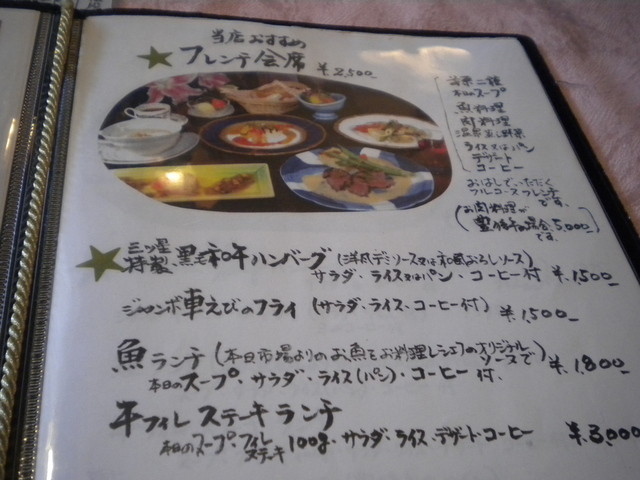 当店おすすめ
★フレンチ会席 ¥2,500-
前菜二種
本日のスープ
魚料理
肉料理
温蒸し野菜
ライス又はパン
デザート
コーヒー
おはしでいただく
フルコースフレンチ
です。
(お肉料理が
の場合5,000
です。)
★三ツ星
特製 黒毛和牛ハンバーグ (洋風デミソース又は和風おろしソース)
サラダ・ライス又はパン・コーヒー付 ¥1,500-
ジャンボ車えびのフライ (サラダ・ライス・コーヒー付) ¥1,500-
魚ランチ (本日市場よりのお魚をお料理しシェフのオリジナル
ソースで)
本日のスープ・サラダ・ライス(パン)・コーヒー付. ¥1,800-
牛フィレステーキランチ
本日のスープ・フィレ
ステーキ 100g・サラダ・ライス・デザート・コーヒー ¥3,000-